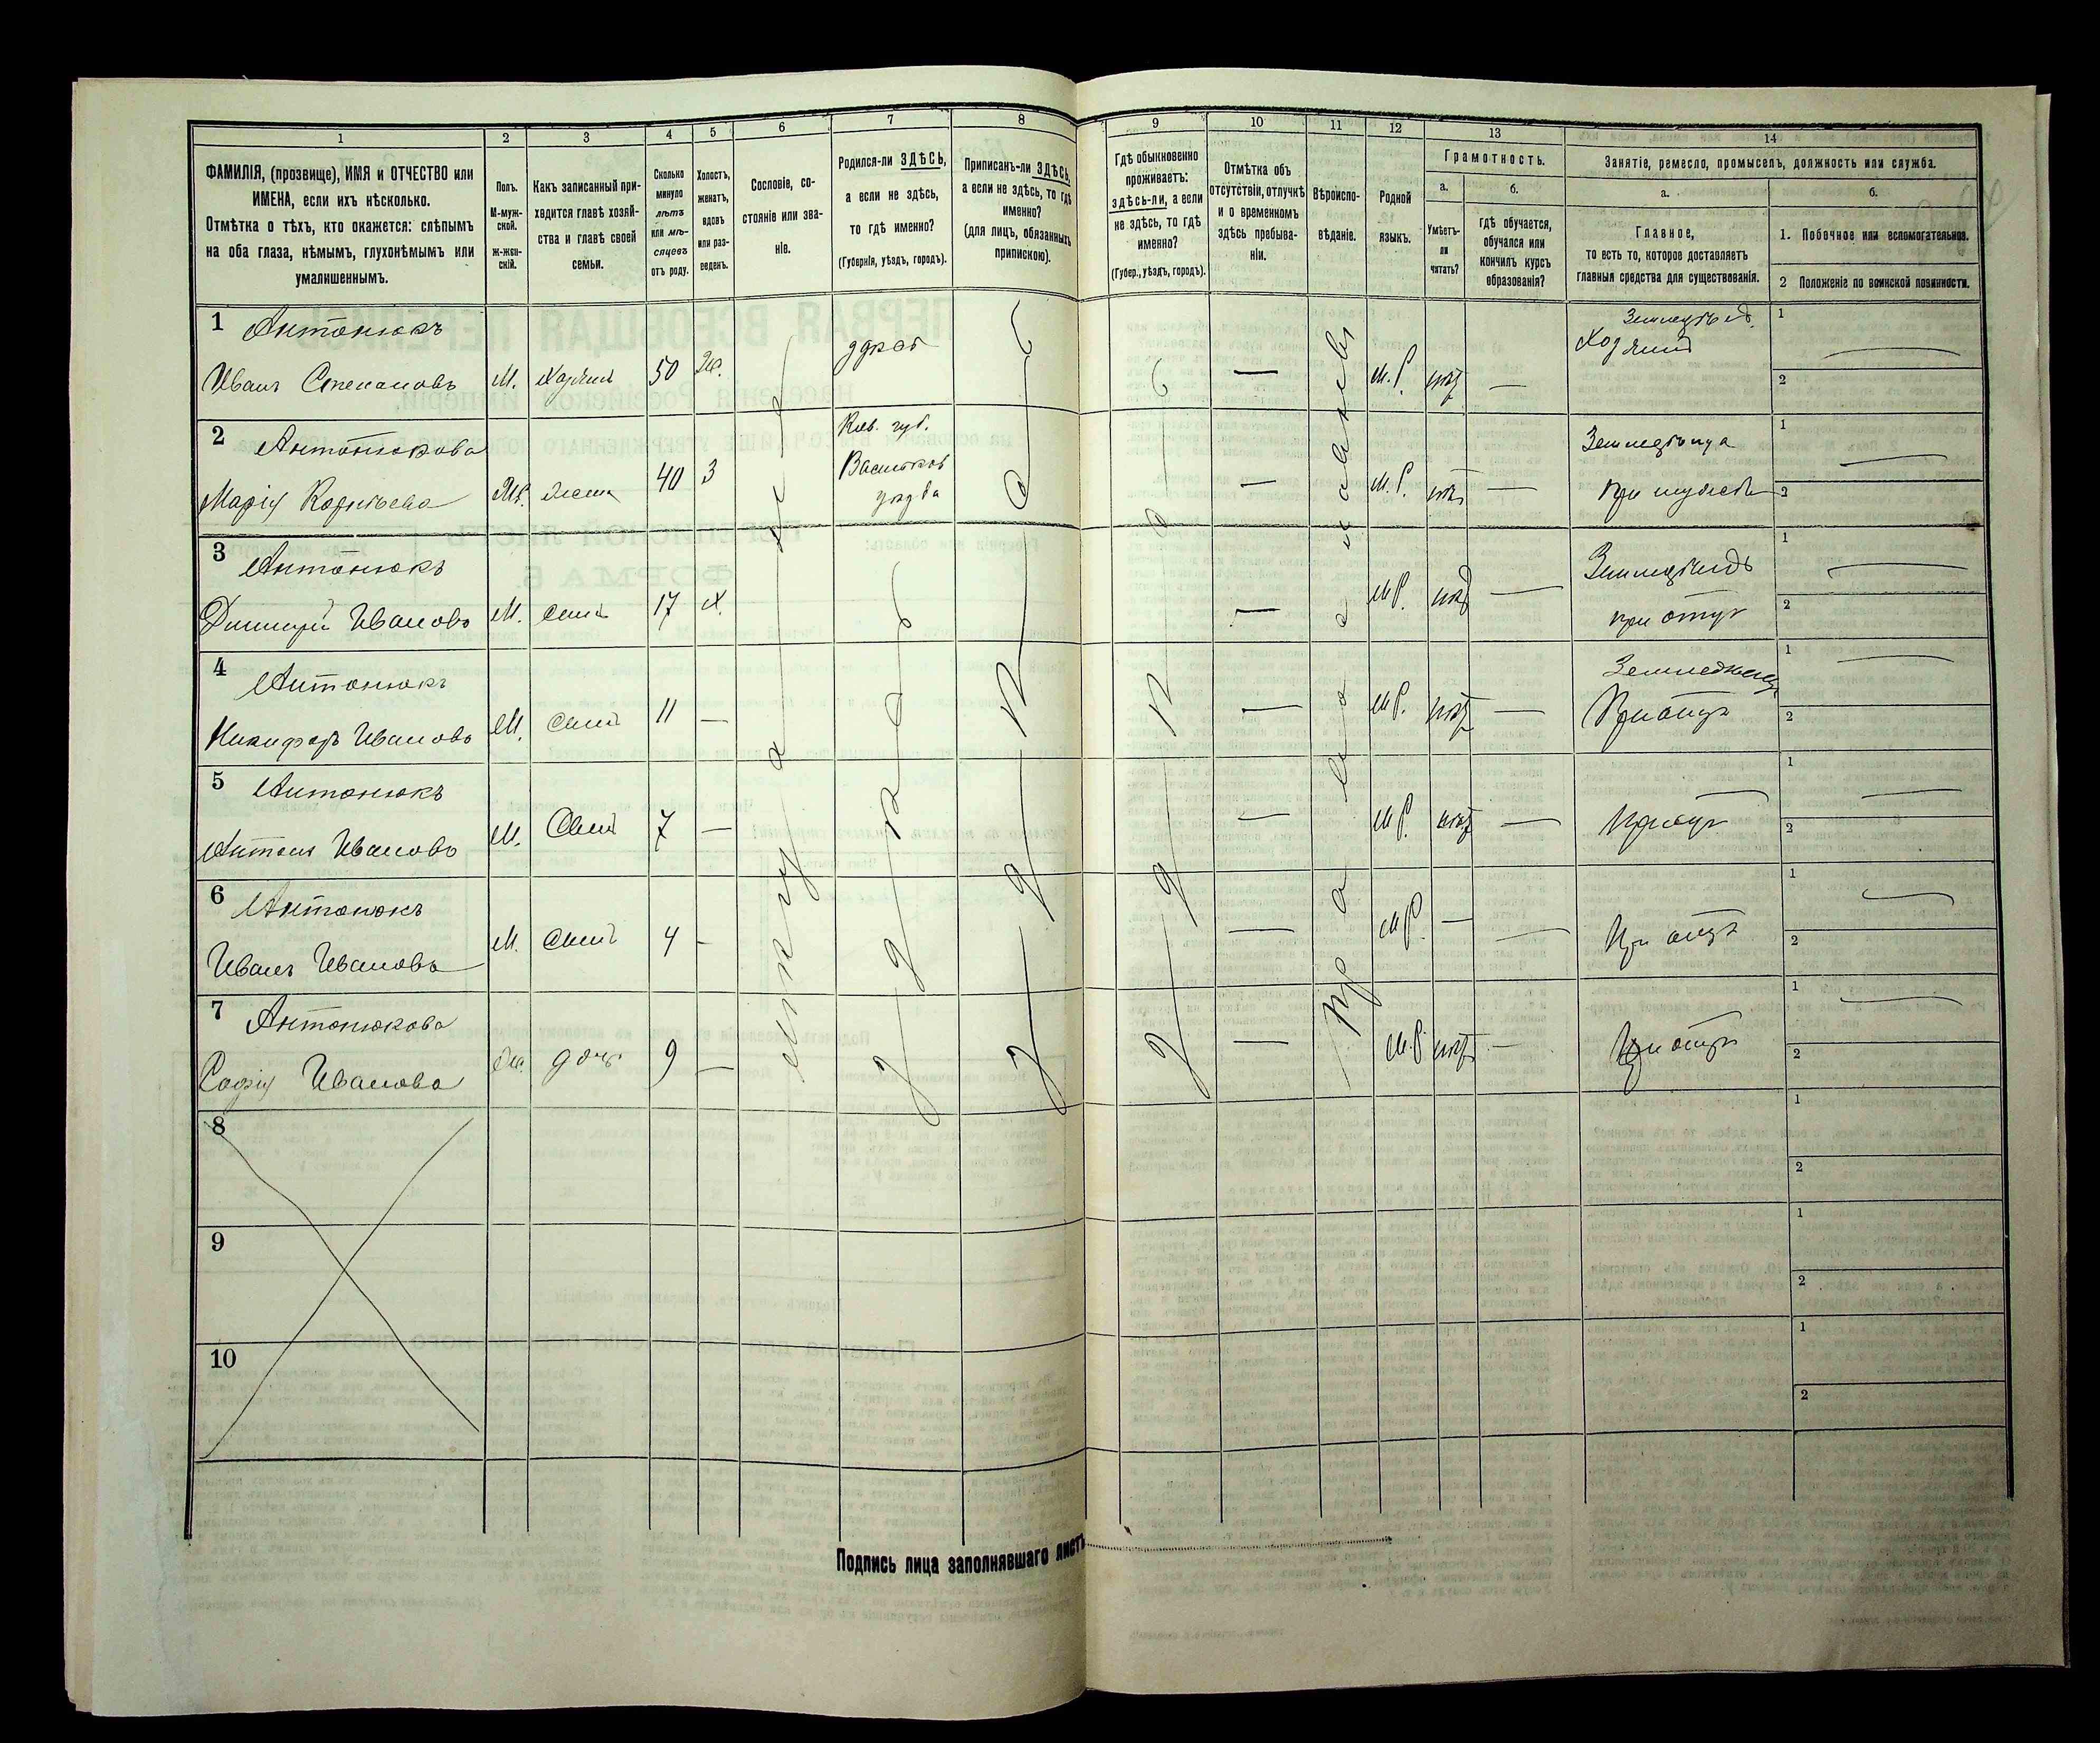 1
2
3
4
5
6
7
8
9
10
11
12
13
14
ФАМИЛІЯ, (прозвище), ИМЯ и ОТЧЕСТВО или
ИМЕНА, если ихъ нѣсколько.
Отмѣтка о тѣхъ, кто окажется: слѣпымъ
на оба глаза, нѣмымъ, глухонѣмымъ или
умалишеннымъ.
Полъ.
М-муж-
ской.
ж-жен-
скій.
Какъ записанный при-
ходится главѣ хозяй-
ства и главѣ своей
семьи.
Сколько
минуло
лѣтъ
или мѣ-
сяцевъ
отъ роду.
Холостъ,
женатъ,
вдовъ
или раз-
веденъ.
Сословіе, со-
стояніе или зва-
ніе.
Родился-ли ЗДѢСЬ,
а если не здѣсь,
то гдѣ именно?
(Губернія, уѣздъ, городъ).
Приписанъ-ли ЗДѢСЬ,
а если не здѣсь, то гдѣ
именно?
(для лицъ, обязанныхъ
припискою).
Гдѣ обыкновенно
проживаетъ:
здѣсь-ли, а если
не здѣсь, то гдѣ
именно?
(Губер., уѣздъ, городъ).
Отмѣтка объ
отсутствіи, отлучкѣ
и о временномъ
здѣсь пребыва-
ніи.
Вѣроиспо-
вѣданіе.
Родной
языкъ.
Грамотность.
а.
б.
Умѣетъ-
ли
читать?
Гдѣ обучается,
обучался или
кончилъ курсъ
образованія?
Занятіе, ремесло, промыселъ, должность или служба.
а.
б.
Главное,
то есть то, которое доставляетъ
главныя средства для существованія.
1. Побочное или вспомогательное.
2 Положеніе по воинской повинности.
1 Антонюкъ
Иванъ Степановъ
М.
50
Ж.
М.Р.
нѣт
—
1
2
2 Антонюкова
Марія
жена
40
З
Кіев. губ.
Васильков
уѣзда
М.Р.
нѣт
—
при мужѣ
1
2
3 Антонюкъ
Дмитрій Ивановъ
М.
сынъ
17
Х.
МР.
нѣт
—
при отцѣ
1
2
4 Антонюкъ
Никифоръ Ивановъ
М.
сынъ
11
—
МР.
нѣт
—
При отцѣ
1
2
5 Антонюкъ
Антонъ Ивановъ
М.
Сынъ
7
—
МР.
нѣт
—
При отцѣ
1
2
6 Антонюкъ
Иванъ Ивановъ
М.
Сынъ
4
—
МР.
—
При отцѣ
1
2
7 Антонюкова
Софія Иванова
Ж.
дочь
9
—
М.Р.
нѣт
—
При отцѣ
1
2
православные
8
1
2
9
1
2
10
1
2
Подпись лица заполнявшаго листъ